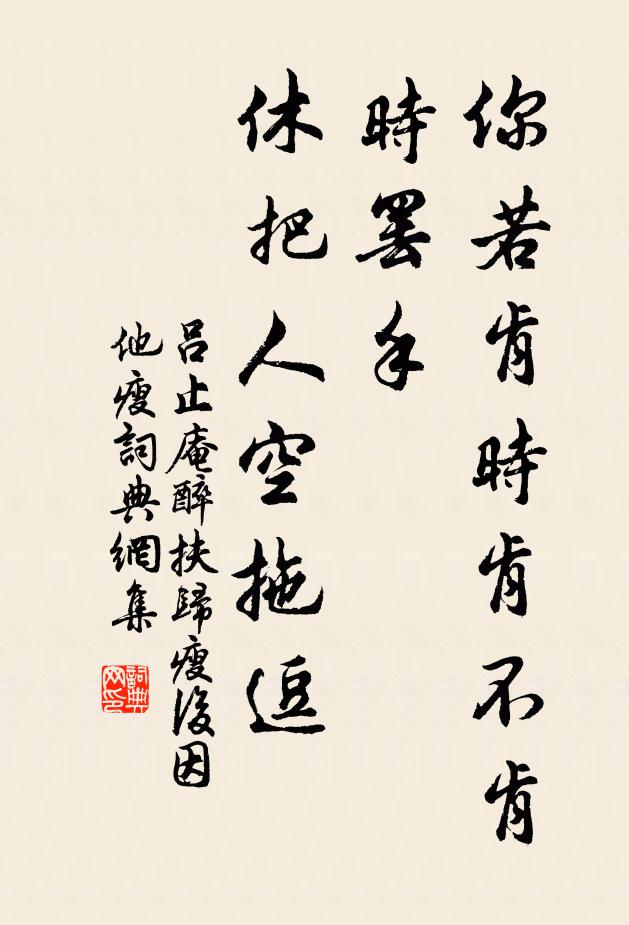 你若肯時肯不肯
時罢手
休把人空拖逗
呂止庵醉扶歸瘦後因
他瘦詞典網集
詞典
网印